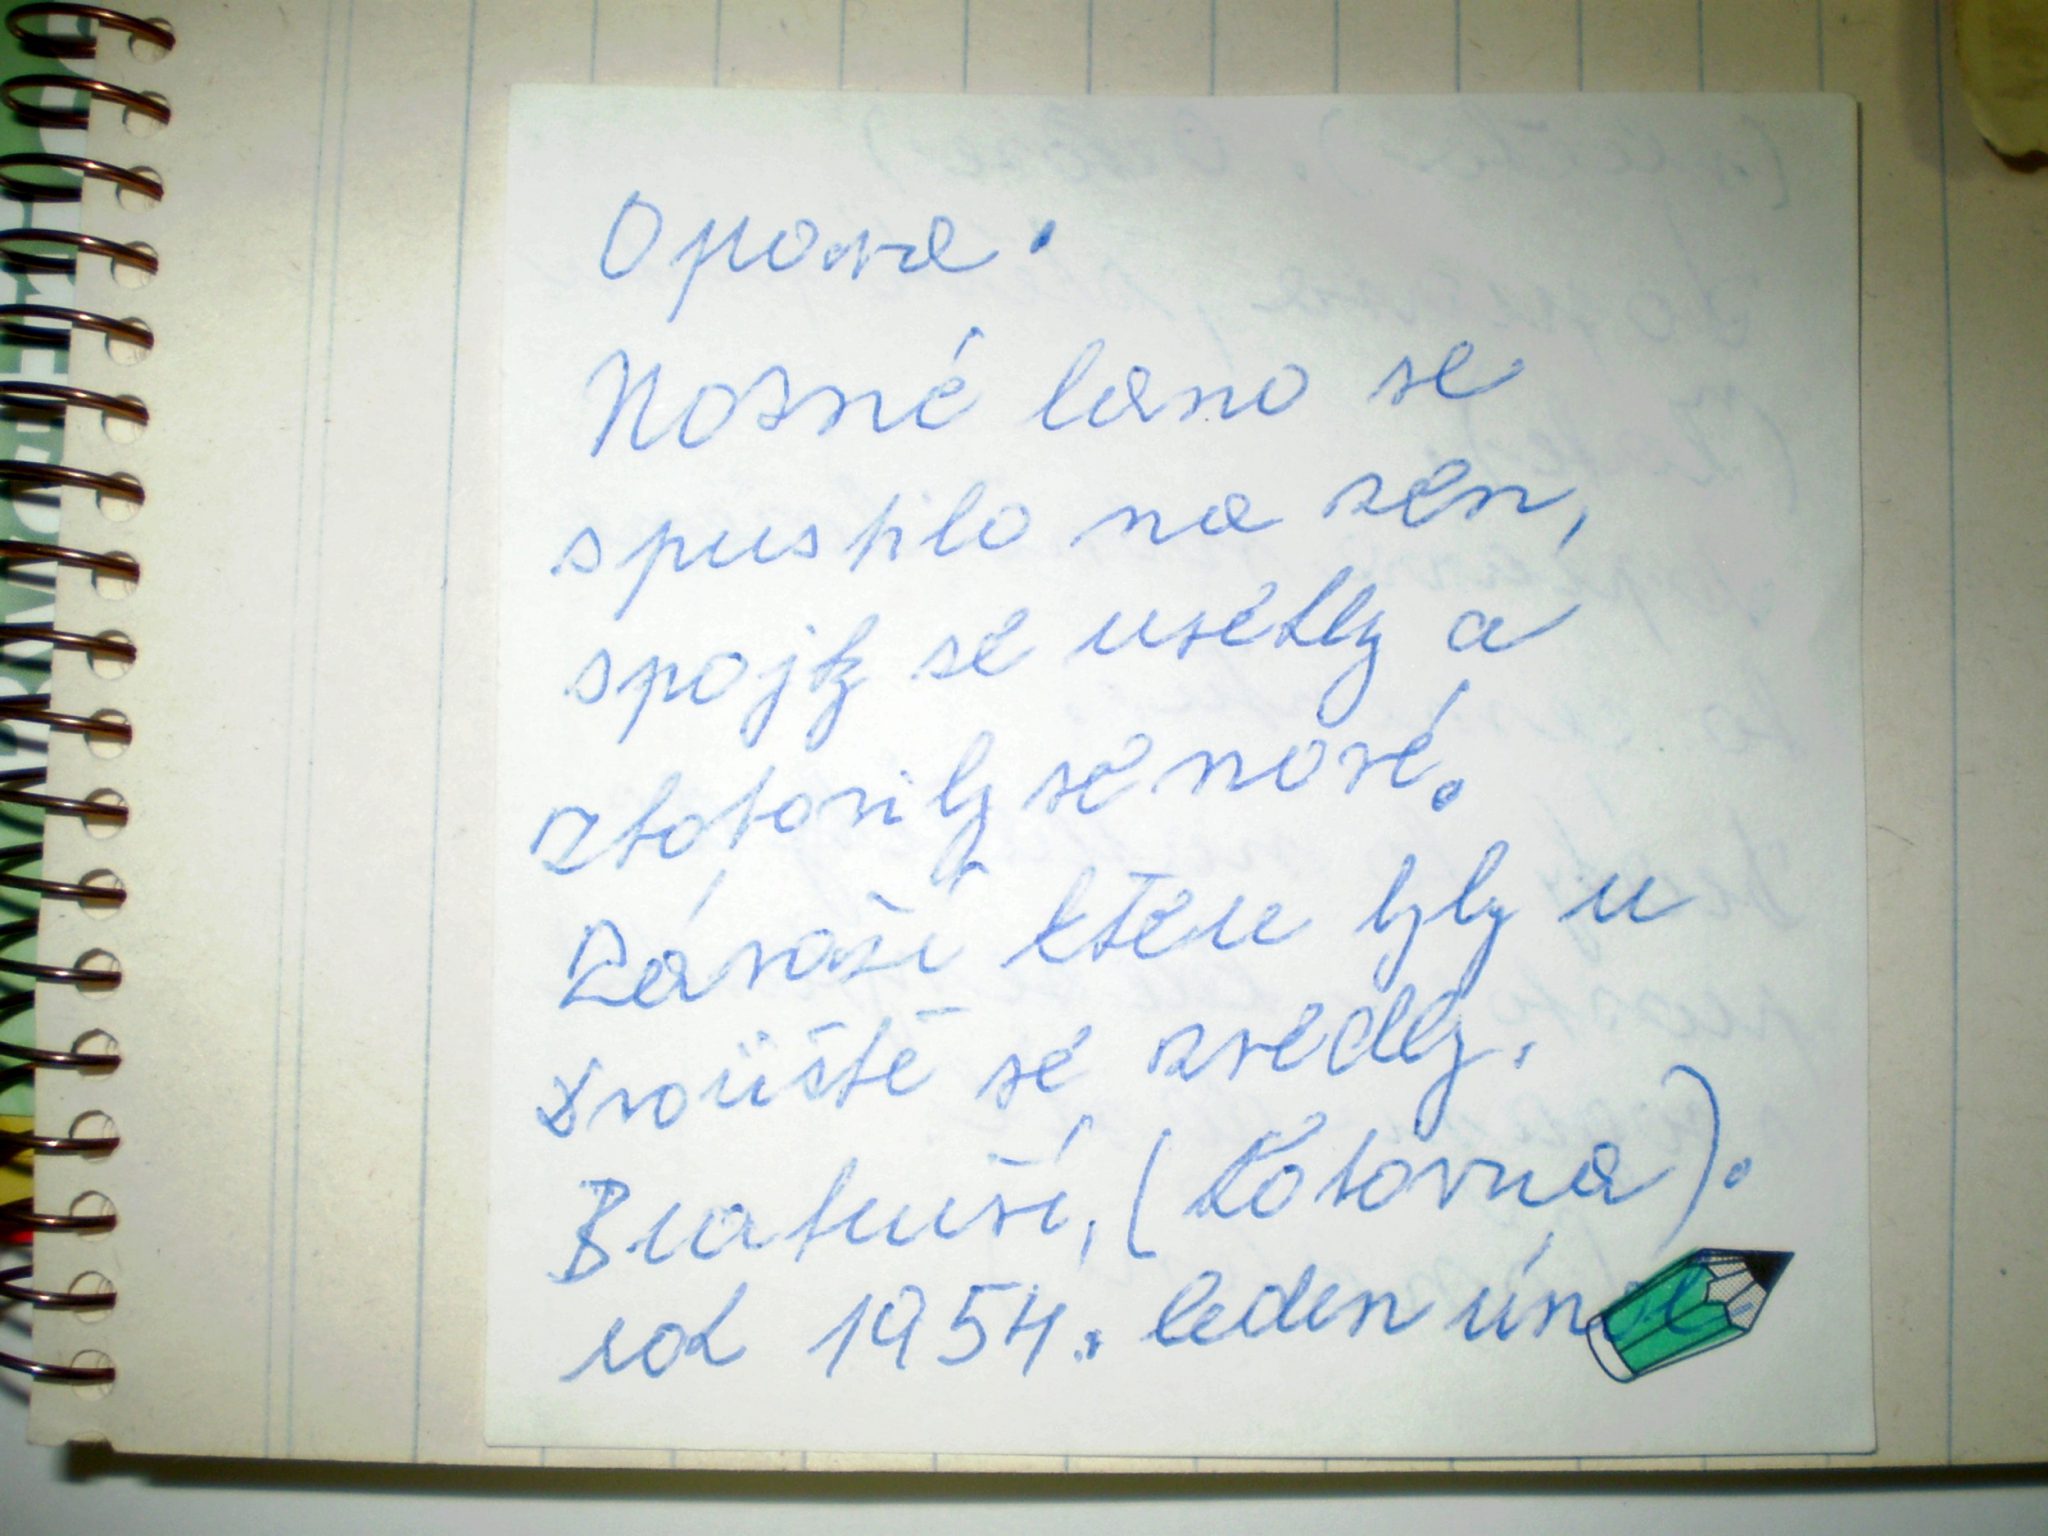 Oprava.
Nosné lano se
spustilo na zem,
spojky se usekly a
zhotovily se nové.
Závaží které byly u
zvoiiště se zvedly.
Bratruší, (Kotovna).
rok 1954. leden únor